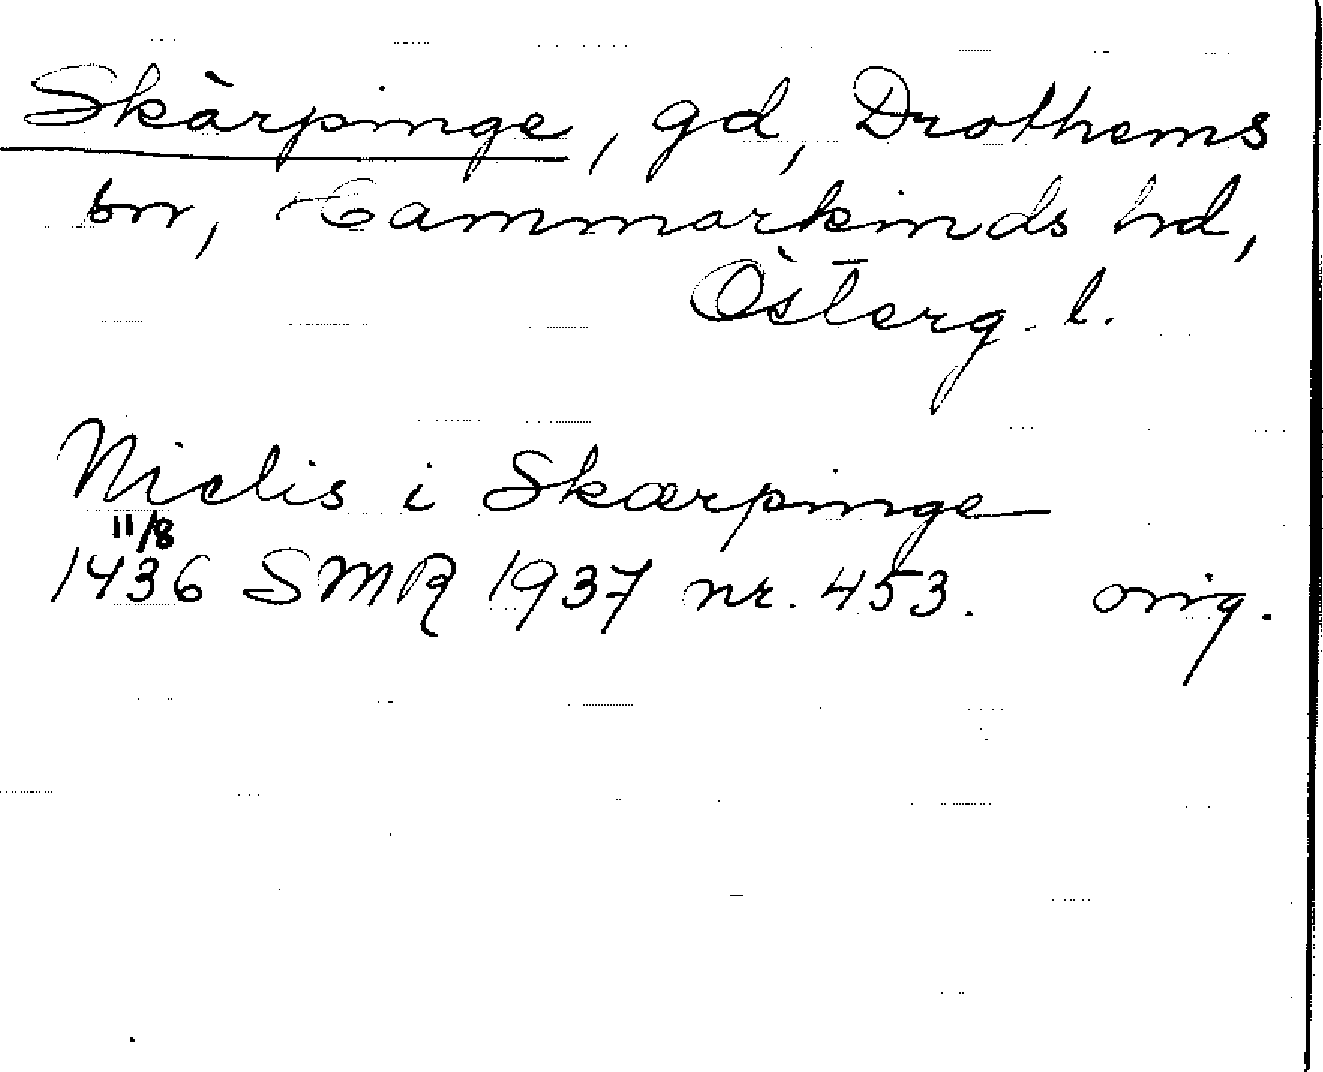 Skärpinge, gd, Drothems
sn, Hammarkinds hd,
Österg. l.
Niclis i Skærpinge
11/8
1436 SMR 1937 nr. 453. orig.